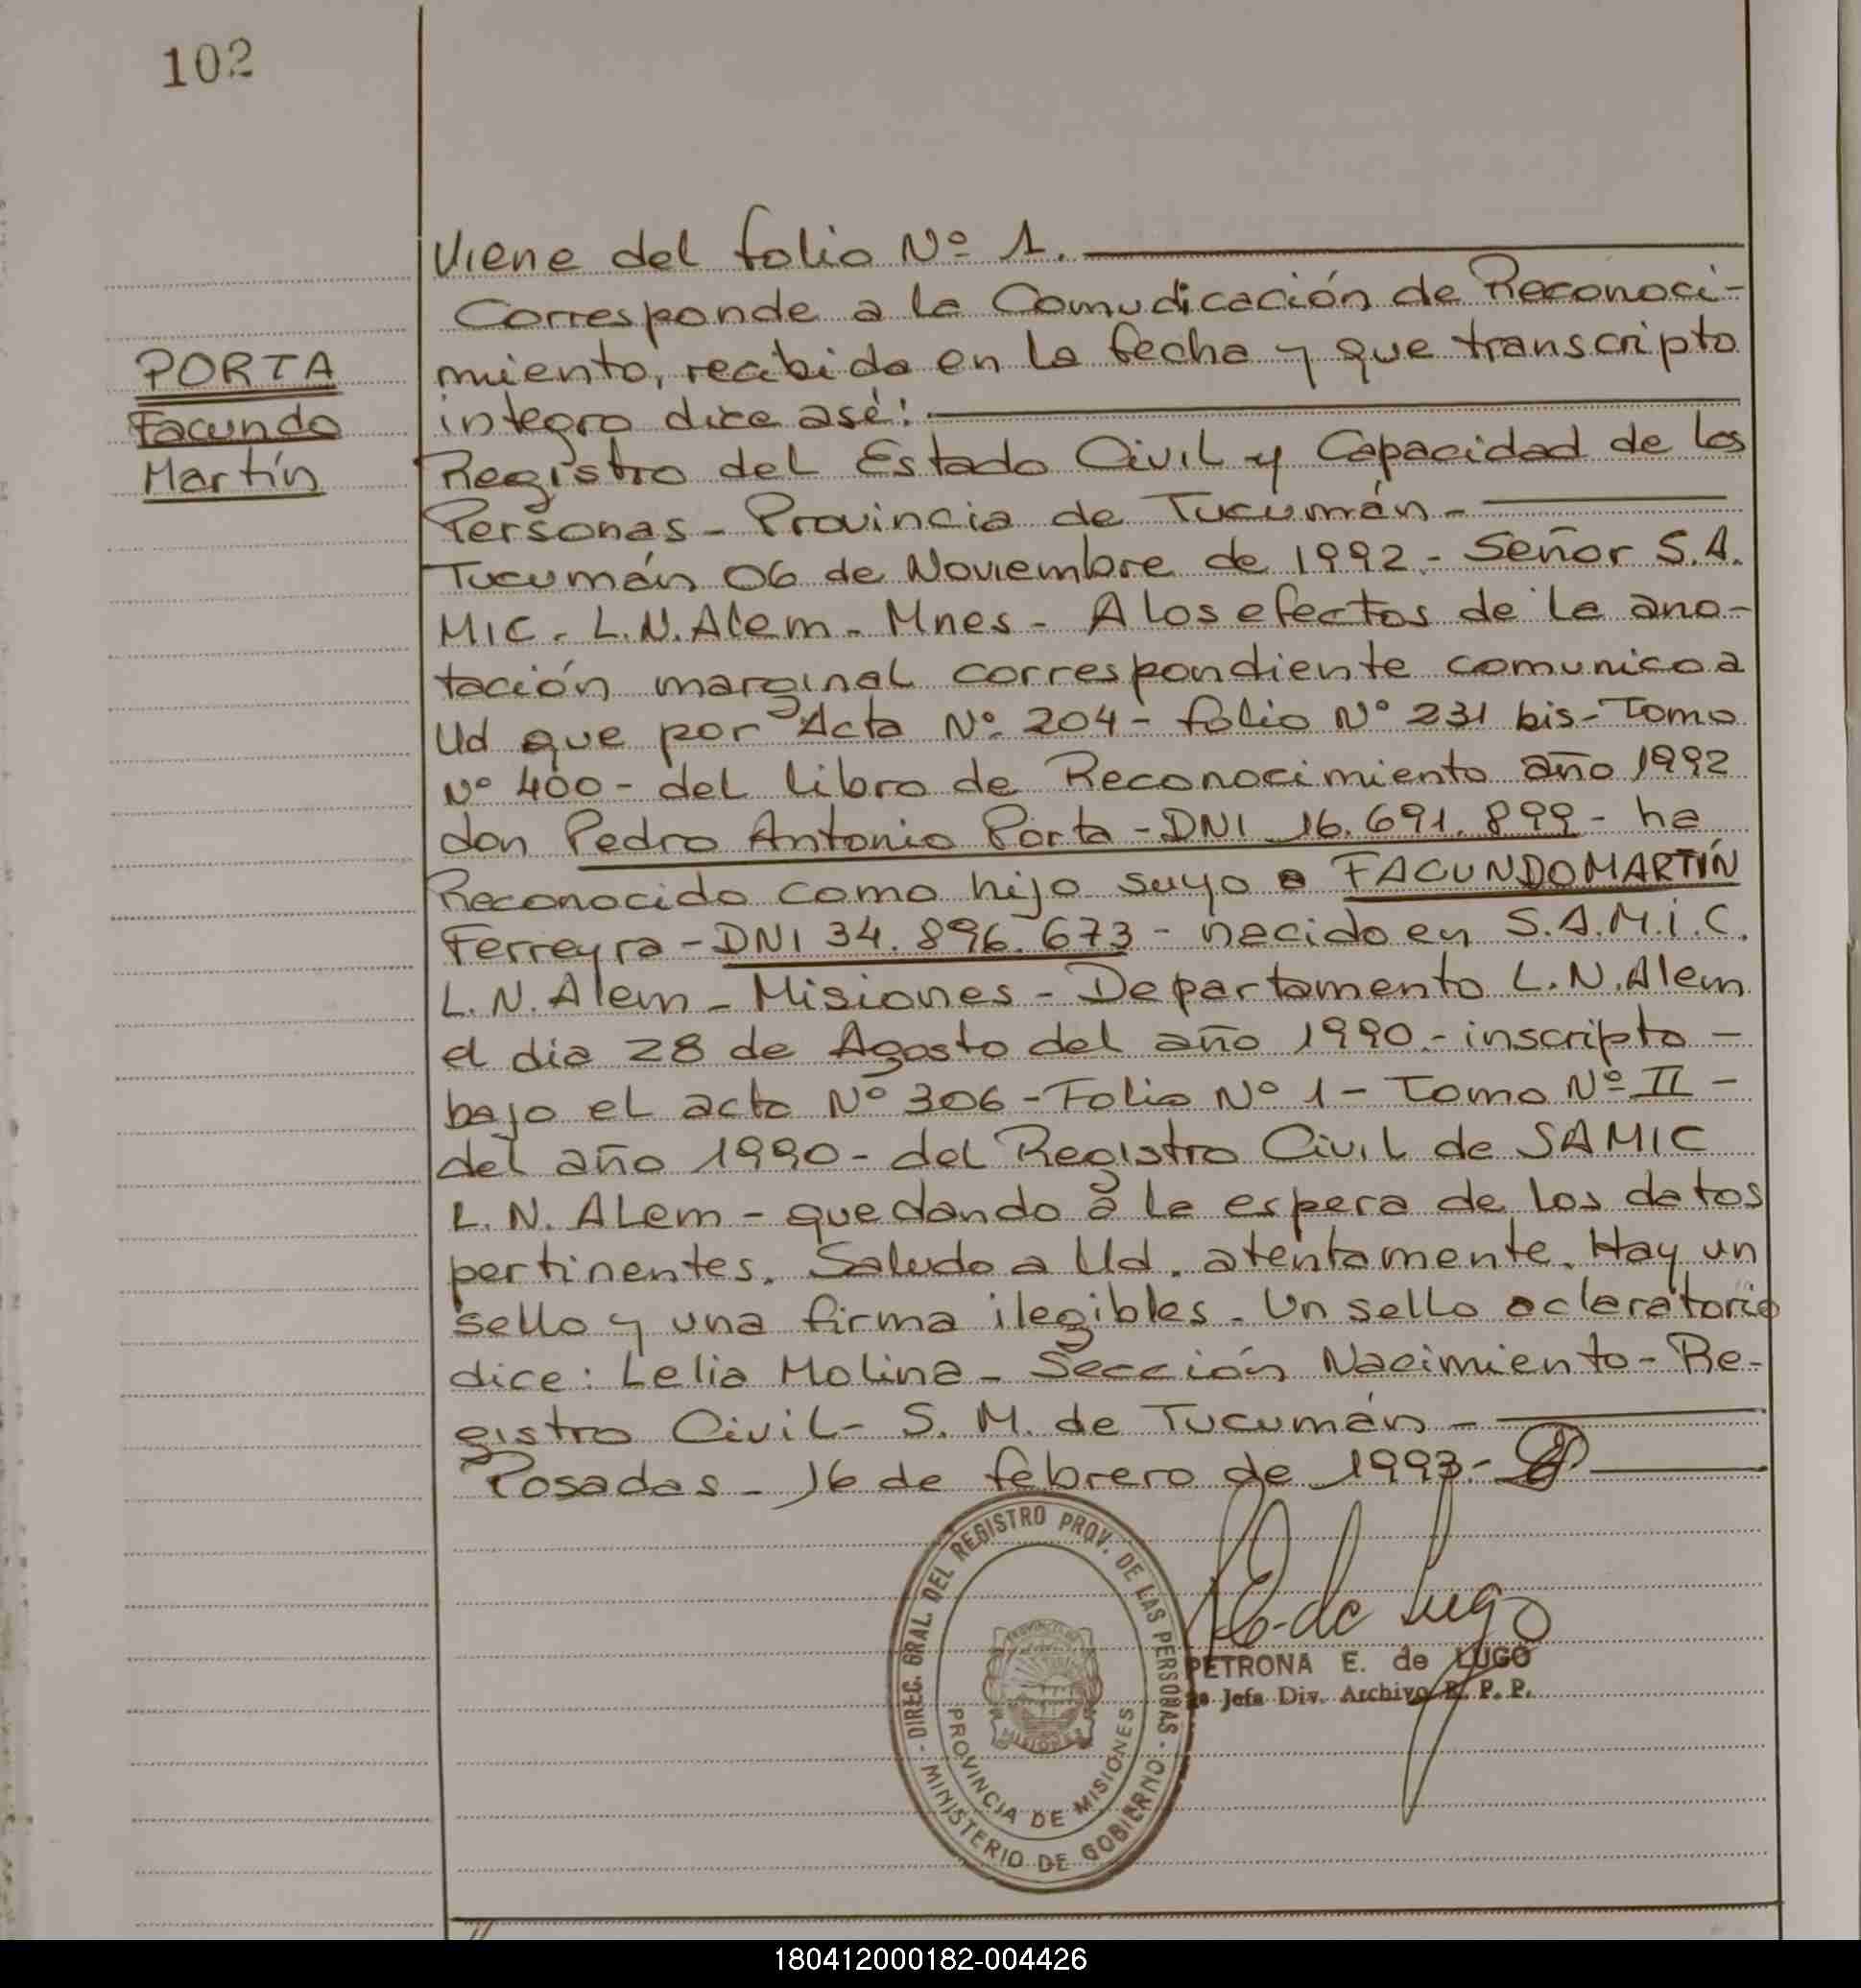 102
Viene del folio Nº 1.
Corresponde a la Comudicación de Reconoci-
miento, recibida en la fecha y que transcripto
integro dice asé:
PORTA
Facundo
Martín
Registro del Estado Civil y Capacidad de los
Personas - Provincia de Tucumán -
Tucumán 06 de Noviembre de 1992 - Señor S.A.
MIC - L.N. Alem - Mnes - A los efectos de la ano-
tación marginal correspondiente comunico a
Ud que por Acta Nº 204 - folio Nº 231 bis - Tomo
Nº 400 - del libro de Reconocimiento año 1992
don Pedro Antonio Porta - DNI 16.691.899 - ha
Reconocido como hijo suyo a FACUNDO MARTÍN
Ferreyra - DNI 34.896.673 - nacido en S.A.M.I.C.
L.N. Alem - Misiones - Departamento L.N. Alem
el dia 28 de Agosto del año 1990 - inscripto -
bajo el acta Nº 306 - Folio Nº 1 - Tomo Nº II -
del año 1990 - del Registro Civil de SAMIC
L.N. Alem - quedando a la espera de los datos
pertinentes. Saludo a Ud. atentamente. Hay un
sello y una firma ilegibles - Un sello aclaratorio
dice: Lelia Molina - Sección Nacimiento - Re-
gistro Civil - S. M. de Tucumán -
Posadas - 16 de febrero de 1993 -
DIREC. GRAL. DEL REGISTRO PROV. DE LAS PERSONAS - MINISTERIO DE GOBIERNO -
PROVINCIA DE MISIONES
de Lugo
PETRONA E. de LUGO
Jefa Div. Archivo R. P. P.
180412000182-004426